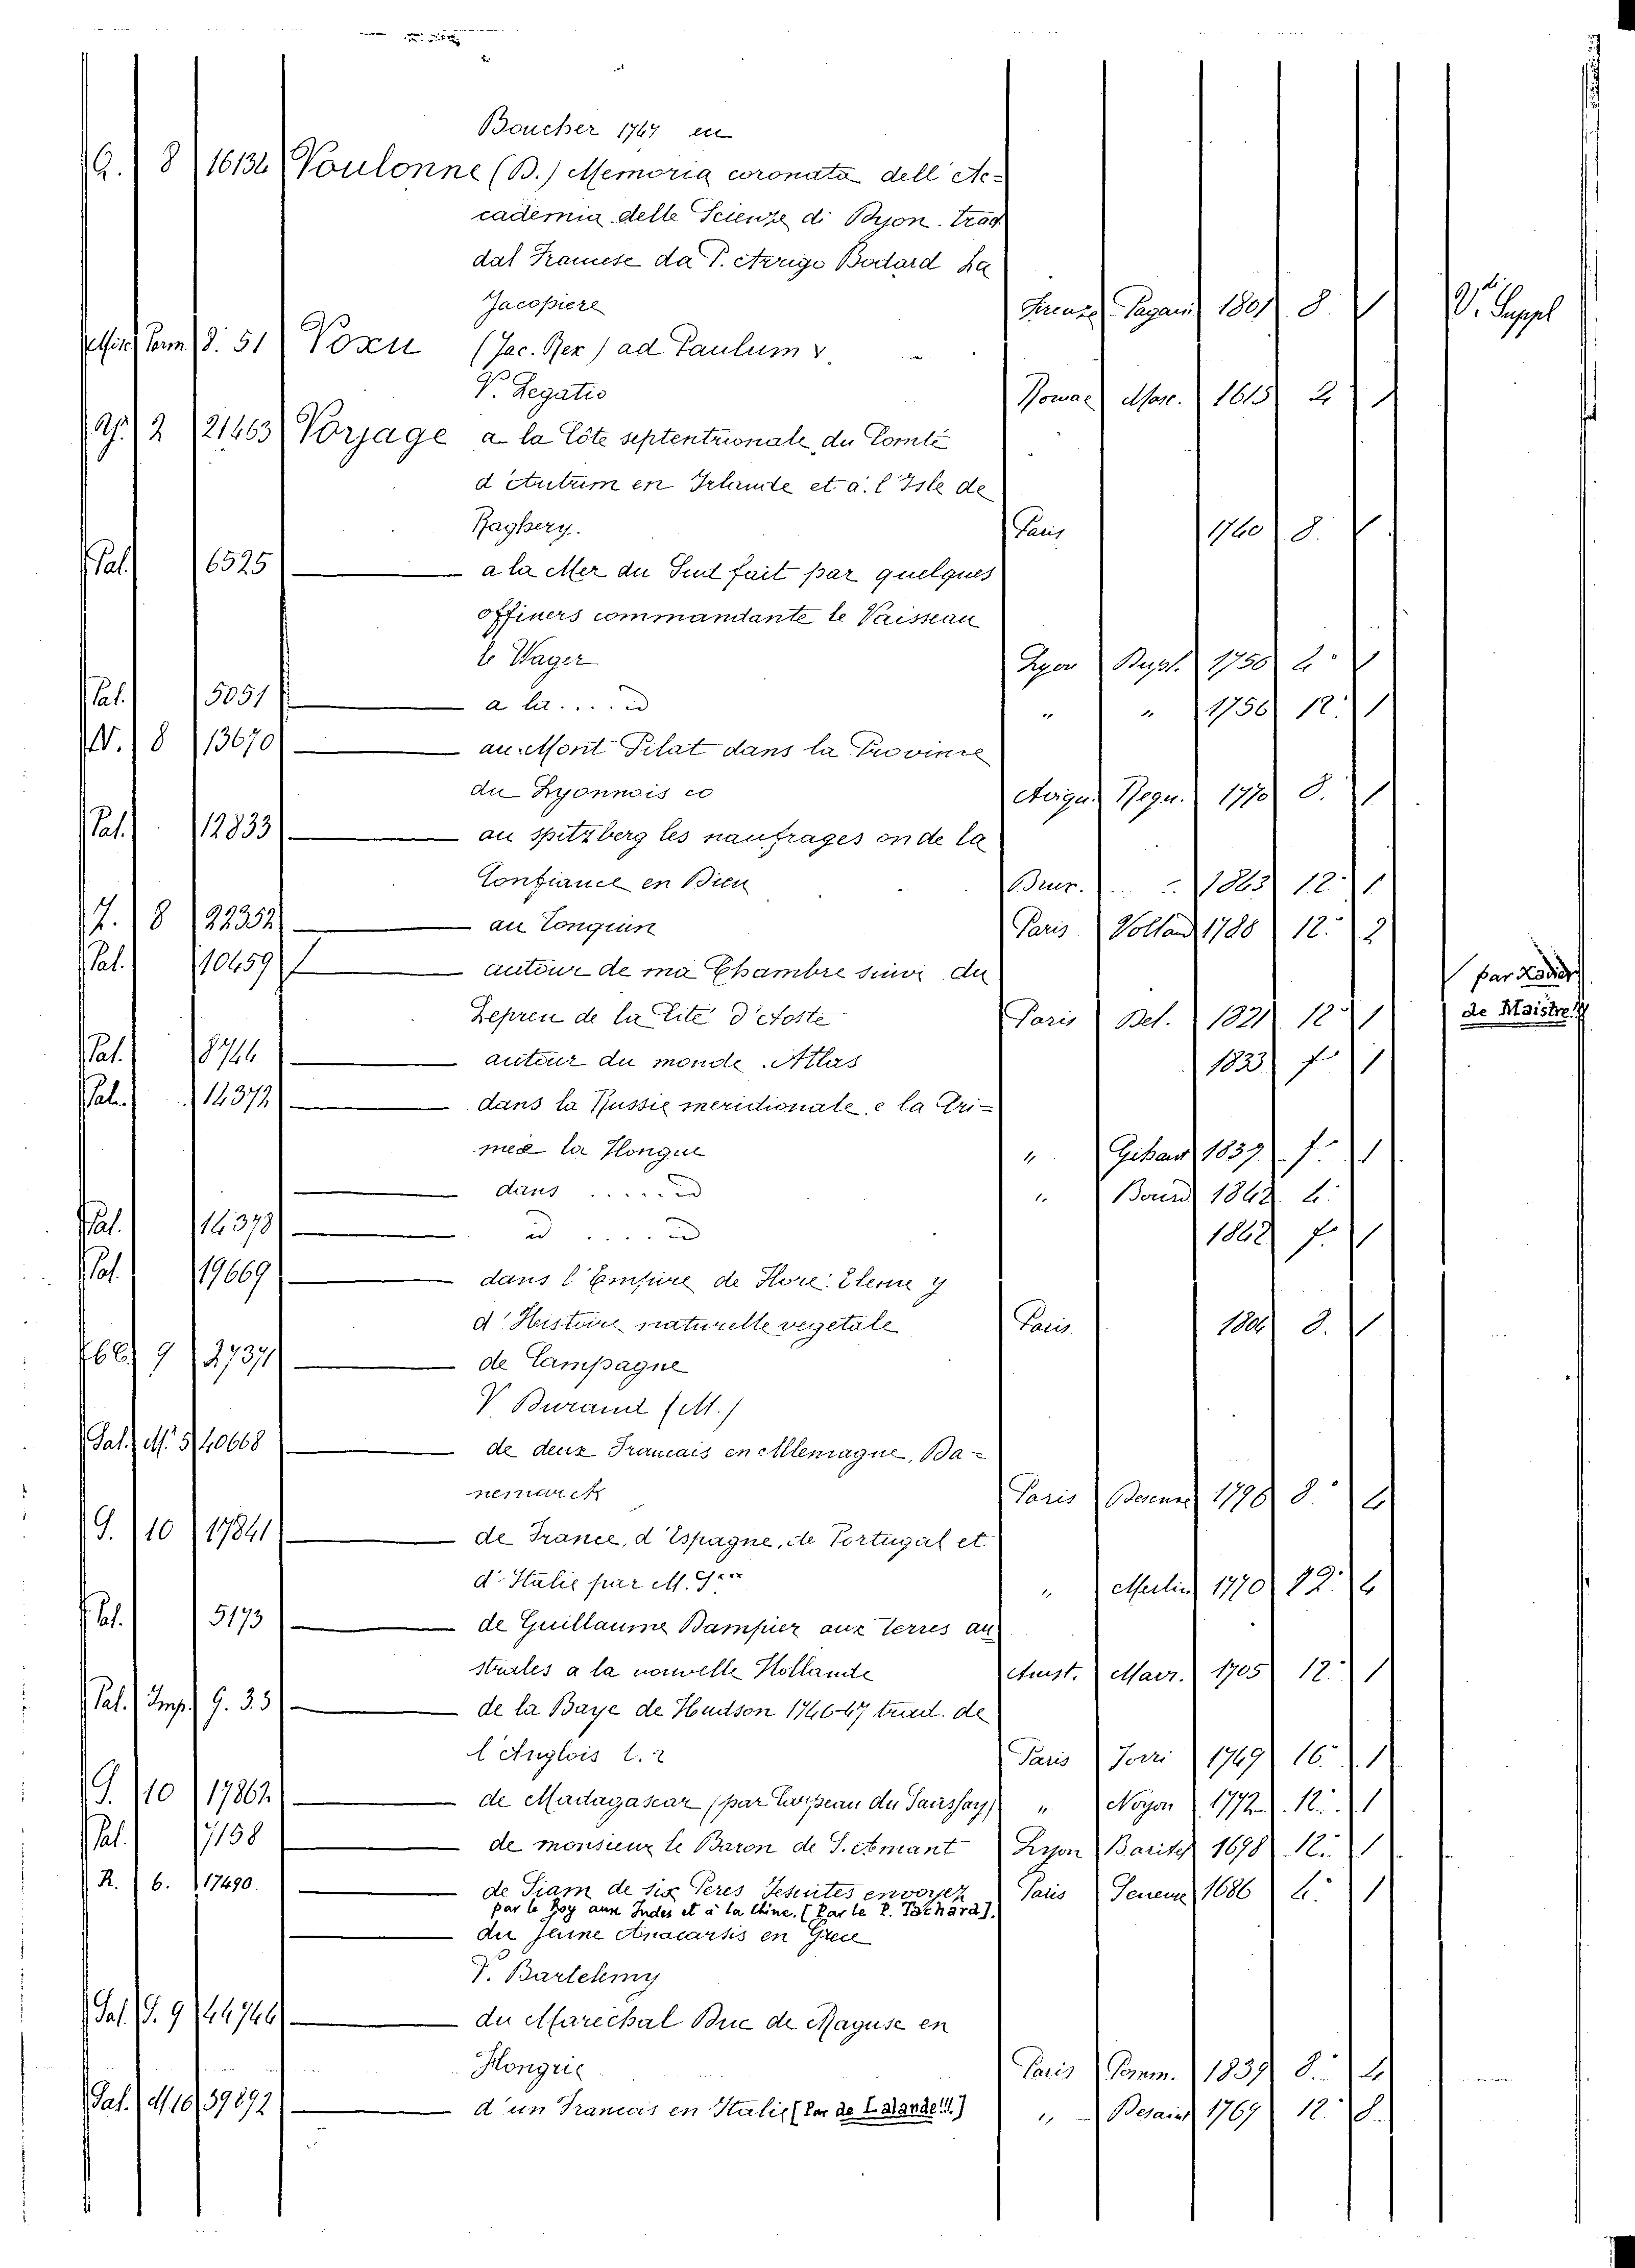 Boucher 1767 en
G. 8 16134 Voulonne (B.) Memoria coronata dell' Ac=
cademia delle Scienze di Byon. trad.
dal Francese da P. Arrigo Bodard La
Jacopiere Firenze Pagani 1801 8. 1 V. Suppl
8. 51 Voxu (Jac. Rex) ad Paulum V.
V. Legatio Romae Masc. 1615 1
2 21463 Vorjage a la Côte septentrionale du Comté
d'Autrim en Irlande et a l'Isle de
Raghery. Paris 1760 8. 1
Pal. 6525 a la Mer du Sud fait par quelques
offiners commandante le Vaisseau
le Wager Lyon Dupl. 1756 4. 1
Pal. 5051 a la .... id " " 1756 12. 1
N. 8 13670 au Mont Pilat dans la Province
du Lyonnois co Avign. Regu. 1770 8. 1
Pal. 12833 au spitzberg les naufrages on de la
Confiance en Dieu Brux. 1863 12. 1
8 22352 au Tonquin Paris Volland 1788 12. 2
Pal. 10459 autour de ma Chambre suivi du par Xavier
Lepreu de la Cité d'Aoste Paris Bel. 1821 12 1 de Maistre
Pal. 8744 autour du monde. Atlas 1833 f. 1
Pal. 14372 dans la Russie meridionale e la Cri=
meé la Hongue " Gihaut 1839 f. 1
dans ...... id " Bourd 1842 4.
Pal. 14378 id ..... id 1848 f. 1
Pal. 19669 dans l'Empire de Flore. Eleme y
d'Histoire naturelle vegetale Paris 8. 1
9 2737 de Campagne
V. Durand (M.)
Pal. M. 5 40668 de deux Francais en Allemagne, Da=
nemarck Paris Desenne 1796 8. 4
G. 10 17841 de France, d'Espagne, de Portugal et
d'Italie par M. G*** " Merlin 1770 12. 4
Pal. 5173 de Guillaume Dampier aux terres au
strales a la nouvelle Hollande Amst. Marr. 1705 12. 1
Pal. Imp. G. 33 de la Baye de Hudson 1746-47 trad. de
l'Anglois t. 2 Paris Jorri 1749 16. 1
G. 10 17862 de Madagascar (par Carpeau du Saussay) " Noyon 1772 12. 1
Pal. 7158 de monsieur le Baron de S. Amant Lyon Barite 1698 12. 1
R. 6. 17490. de Siam de six Peres Jesuites envoyez Paris Seneuze 1686 4. 1
par le Roy aux Indes et à la Chine. [Par le P. Tachard].
du jeune Anacarsis en Grece
V. Bartelemy
Pal. G. 9 44744 du Marechal Duc de Raguse en
Hongrie Paris Comm. 1839 8. 4
Pal. M 10 39892 d'un Francois en Italie [Par de Lalande!!!.] " Desaint 1769 12. 8.